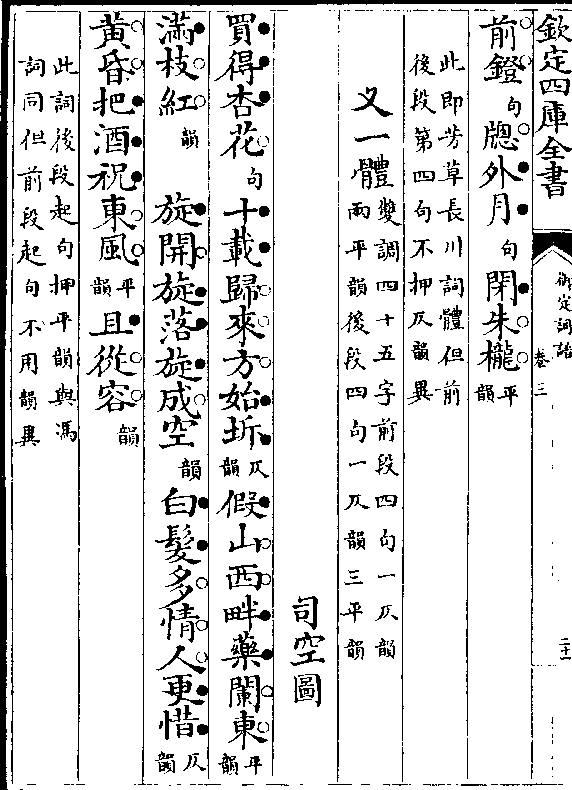 欽定四庫全書
御定詞譜 卷三
二十一
前鐙句牕外月句閉朱櫳平韻
此即芳草長川詞體但前
後段第四句不押仄韻異
又一體雙調四十五字前段四句一仄韻
兩平韻後段四句一仄韻三平韻
司空圖
買得杏花句十載歸來方始坼仄韻假山西畔藥闌東平韻
滿枝紅韻 旋開旋落旋成空韻白髮多情人更惜仄韻
黃昏把酒祝東風平韻且從容韻
此詞後段起句押平韻與馮
詞同但前段起句不用韻異